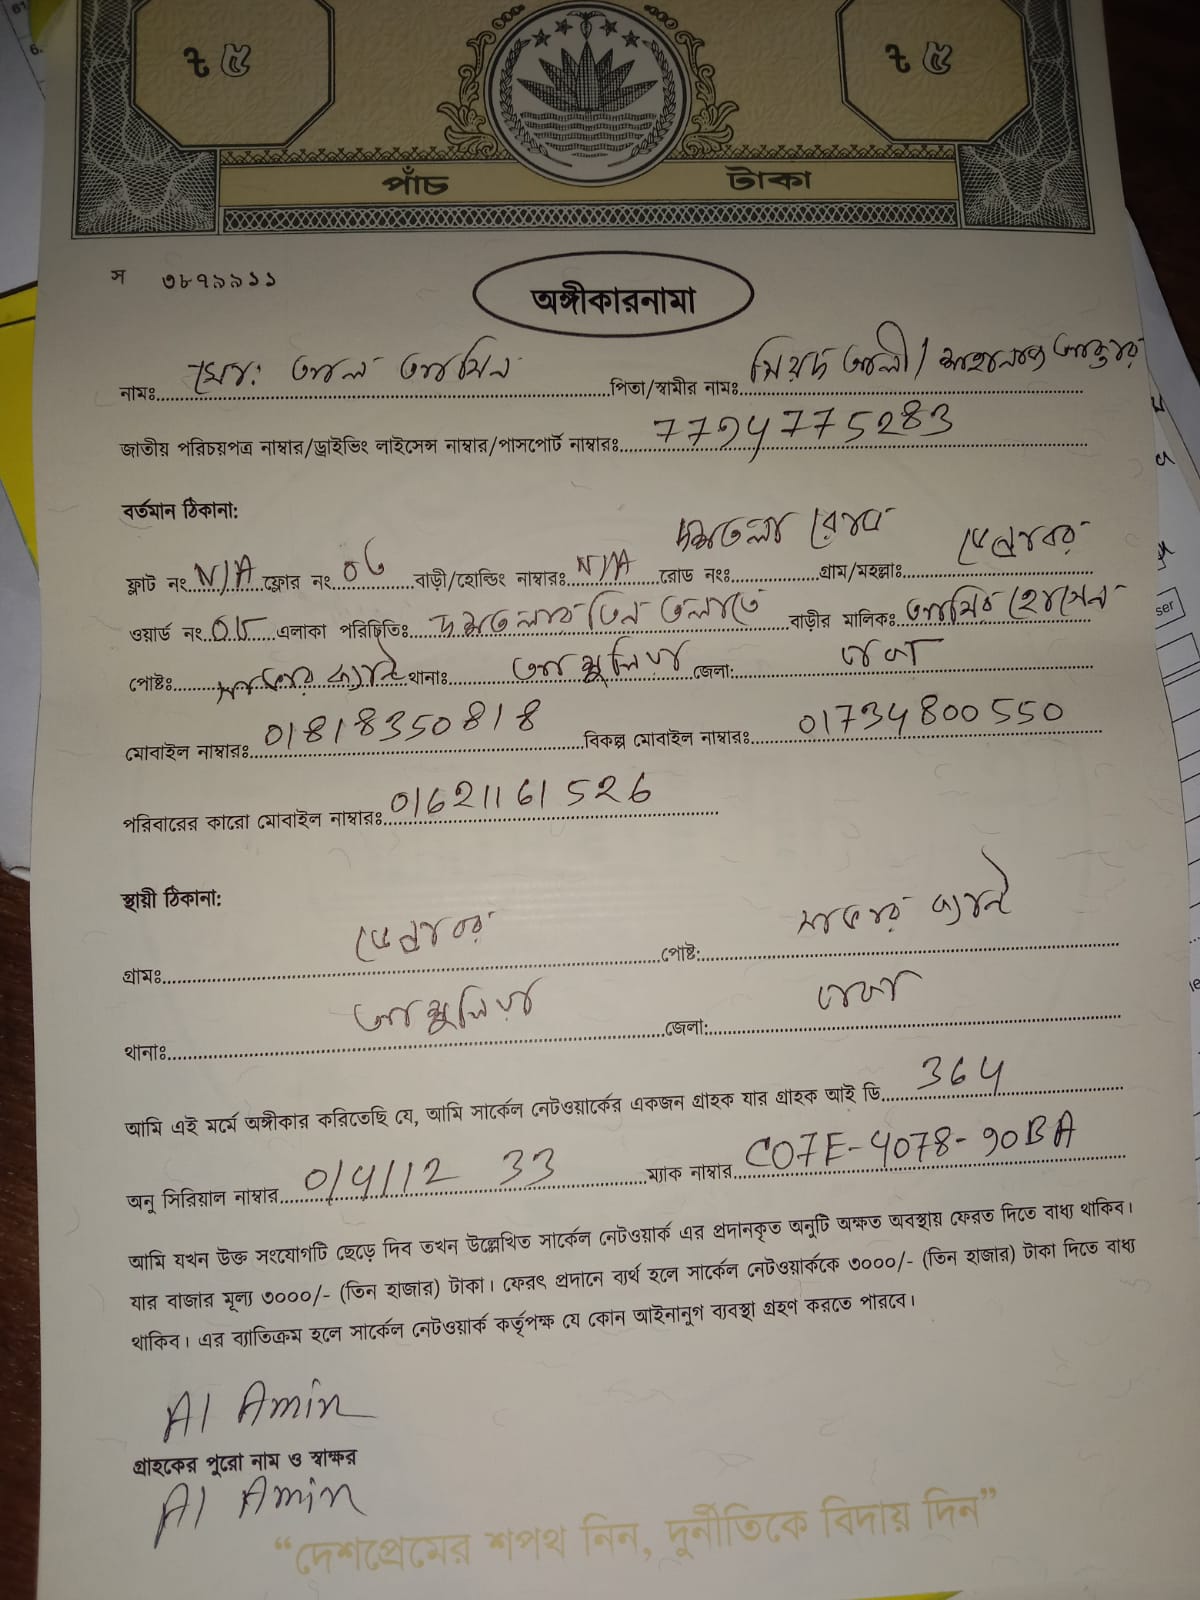 ৳ ৫ ৳ ৫
পাঁচ টাকা
স ৩৮৭৯৯১১
অঙ্গীকারনামা
নামঃ মোঃ আল আমিন পিতা/স্বামীর নামঃ আলী / আক্তার
জাতীয় পরিচয়পত্র নাম্বার/ড্রাইভিং লাইসেন্স নাম্বার/পাসপোর্ট নাম্বারঃ 7794775283
বর্তমান ঠিকানা:
ফ্লাট নং N/A ফ্লোর নং 06 বাড়ী/হোল্ডিং নাম্বারঃ N/A রোড নংঃ দশতলা রোড গ্রাম/মহল্লাঃ
ওয়ার্ড নং 05 এলাকা পরিচিতিঃ দশতলার তিন তলাতে বাড়ীর মালিকঃ আমির হোসেন
পোষ্টঃ থানাঃ আশুলিয়া জেলা: ঢাকা
মোবাইল নাম্বারঃ 01818350818 বিকল্প মোবাইল নাম্বারঃ 01734800550
পরিবারের কারো মোবাইল নাম্বারঃ 01621161526
স্থায়ী ঠিকানা:
গ্রামঃ পোষ্ট:
থানাঃ আশুলিয়া জেলা: ঢাকা
আমি এই মর্মে অঙ্গীকার করিতেছি যে, আমি সার্কেল নেটওয়ার্কের একজন গ্রাহক যার গ্রাহক আই ডি 364
অনু সিরিয়াল নাম্বার 0/4/12 33 ম্যাক নাম্বার C07E-4078-90BA
আমি যখন উক্ত সংযোগটি ছেড়ে দিব তখন উল্লেখিত সার্কেল নেটওয়ার্ক এর প্রদানকৃত অনুটি অক্ষত অবস্থায় ফেরত দিতে বাধ্য থাকিব।
যার বাজার মূল্য ৩০০০/- (তিন হাজার) টাকা। ফেরৎ প্রদানে ব্যর্থ হলে সার্কেল নেটওয়ার্ককে ৩০০০/- (তিন হাজার) টাকা দিতে বাধ্য
থাকিব। এর ব্যাতিক্রম হলে সার্কেল নেটওয়ার্ক কর্তৃপক্ষ যে কোন আইনানুগ ব্যবস্থা গ্রহণ করতে পারবে।
Al Amin
গ্রাহকের পুরো নাম ও স্বাক্ষর
Al Amin
“দেশপ্রেমের শপথ নিন, দুর্নীতিকে বিদায় দিন”